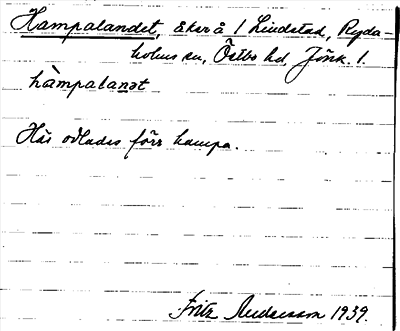 Hampalandet, åker å 1 Lindstad, Ryda-
holms sn, Östbo hd, Jönk. l.
hàmpalanət
Här odlades förr hampa.
Fritz Andersson 1939.